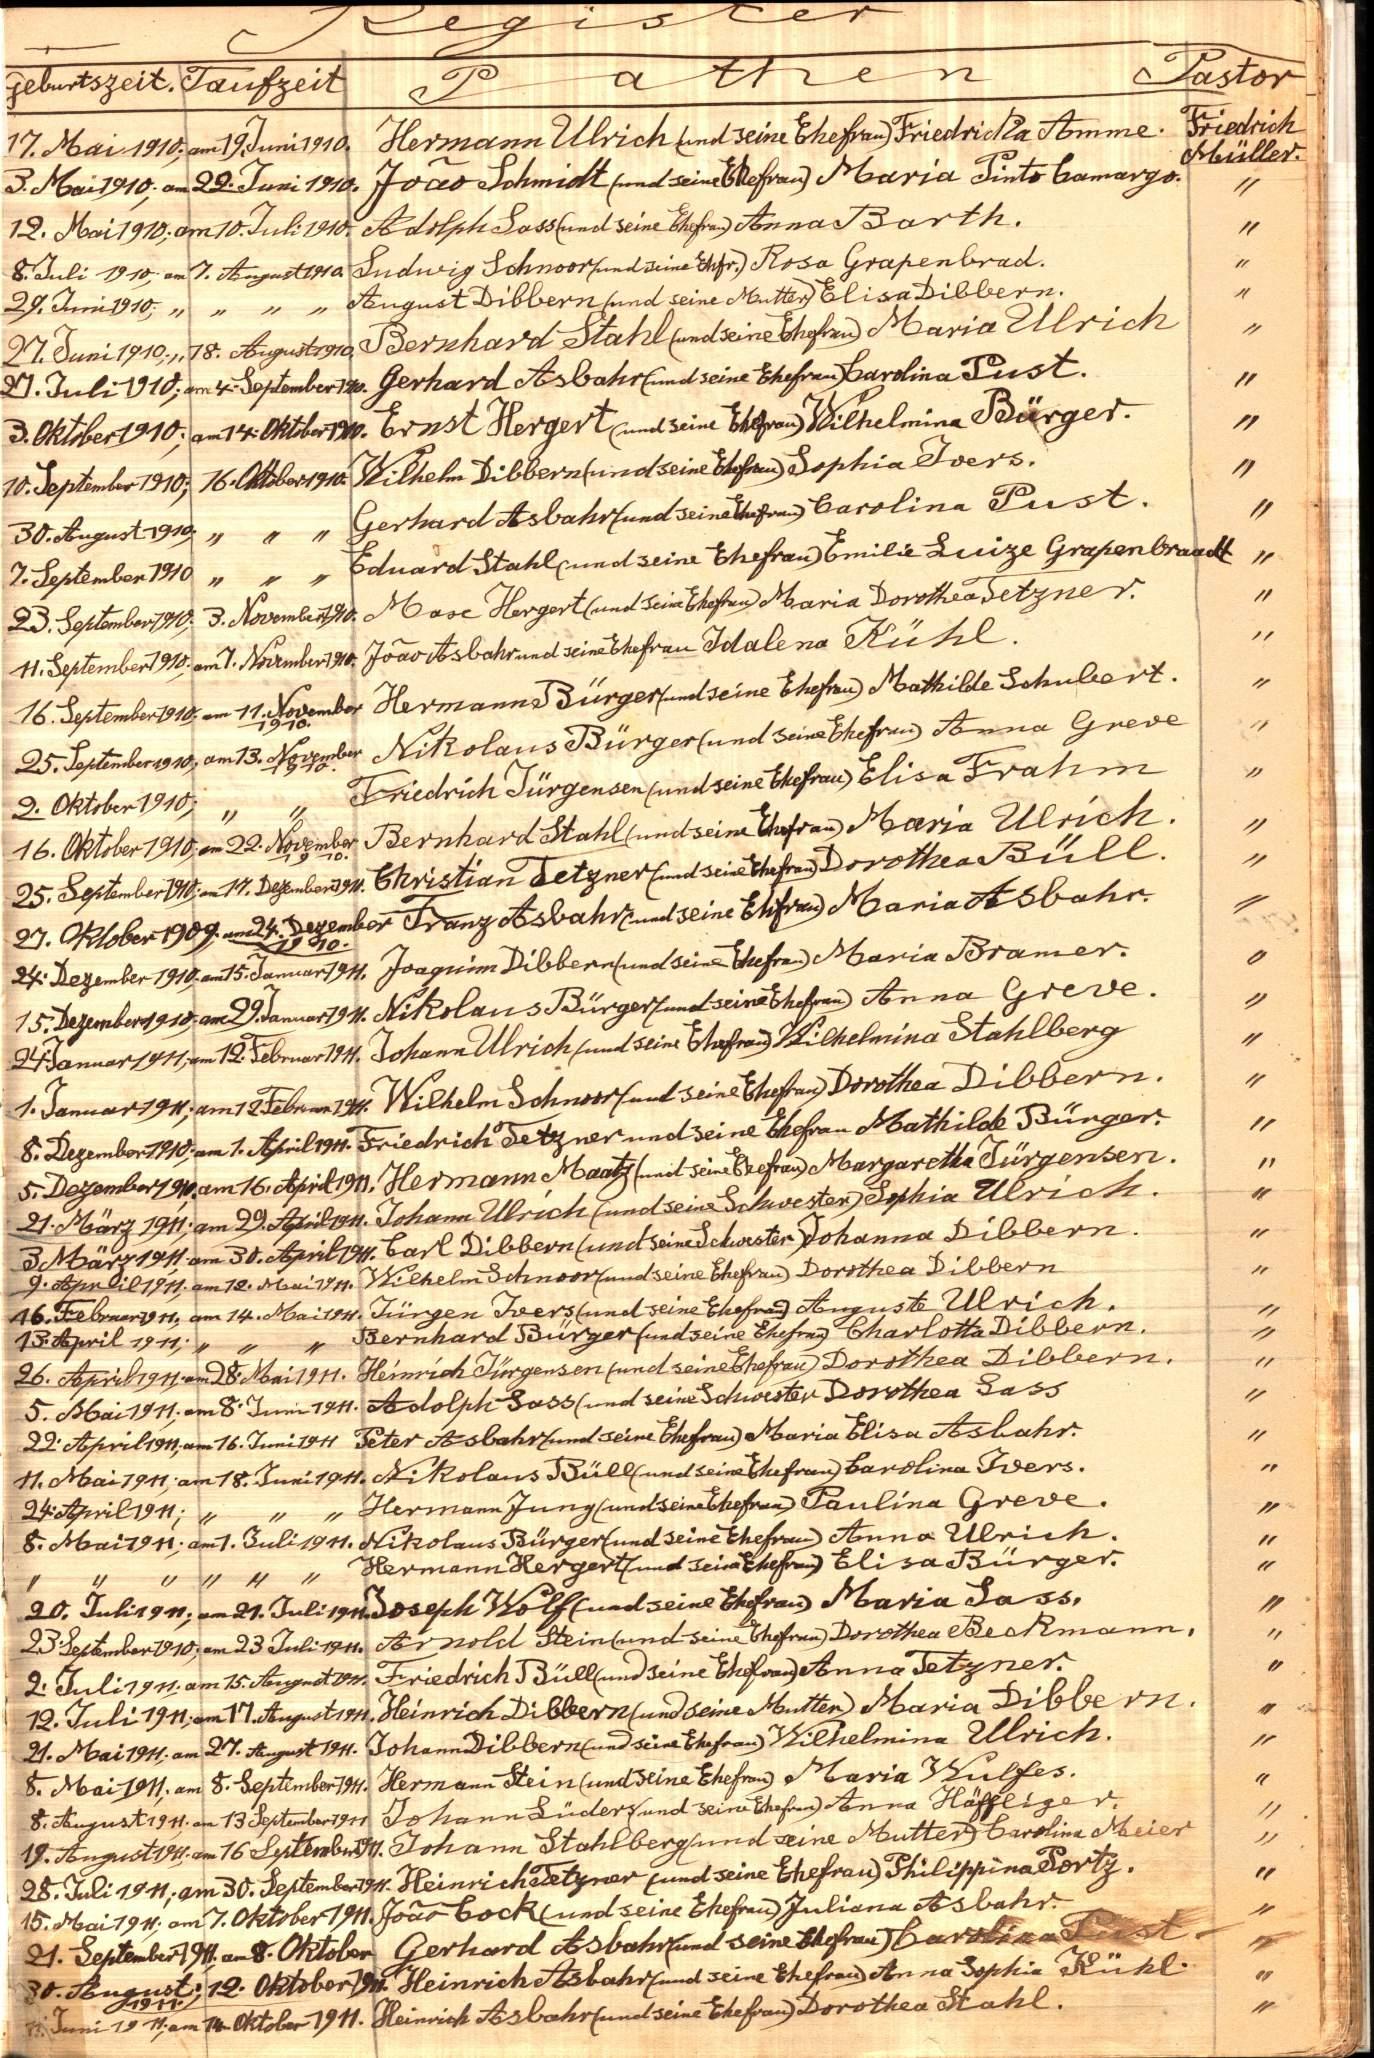 Register
Geburtszeit. Taufzeit Pathen Pastor
17. Mai 1910; am 19. Juni 1910. Hermann Ulrich (und seine Ehefrau) Friedricka Amme. Friedrich Müller.
3. Mai 1910, am 22. Juni 1910. João Schmidt (und seine Ehefrau) Maria Pinto Camargo. "
12. Mai 1910; am 10. Juli 1910. Adolph Sass (und seine Ehefrau) Anna Barth. "
8. Juli 1910, am 7. August 1910. Ludwig Schnoor (und seine Ehfr.) Rosa Grapenbrad. "
29. Juni 1910; " " " " August Dibbern (und seine Mutter) Elisa Dibbern. "
27. Juni 1910; " 18. August 1910. Bernhard Stahl (und seine Ehefrau) Maria Ulrich "
27. Juli 1910; am 4. September 1910. Gerhard Asbahr (und seine Ehefrau) Carolina Pust. "
3. Oktober 1910; am 14. Oktober 1910. Ernst Hergert (und seine Ehefrau) Wilhelmina Bürger. "
10. September 1910; 16. Oktober 1910. Wilhelm Dibbern (und seine Ehefrau) Sophia Ivers. "
30. August 1910; " " " Gerhard Asbahr (und seine Ehefrau) Carolina Pust. "
7. September 1910 " " " Eduard Stahl (und seine Ehefrau) Emilie Luize Grapenbraadt "
23. September 1910; 3. November 1910. Max Hergert (und seine Ehefrau) Maria Dorothea Tetzner. "
11. September 1910; am 7. November 1910. João Asbahr und seine Ehefrau Idalena Kühl. "
16. September 1910; am 11. November 1910. Hermann Bürger (und seine Ehefrau) Mathilde Schubert. "
25. September 1910; am 13. November 1910. Nikolaus Bürger (und seine Ehefrau) Anna Greve "
2. Oktober 1910; " " Friedrich Jürgensen (und seine Ehefrau) Elisa Frahm "
16. Oktober 1910; am 22. November 1910. Bernhard Stahl (und seine Ehefrau) Maria Ulrich. "
25. September 1910; am 17. Dezember 1911. Christian Tetzner (und seine Ehefrau) Dorothea Büll. "
27. Oktober 1909. am 24. Dezember 1910. Franz Asbahr (und seine Ehfrau) Maria Asbahr. "
24. Dezember 1910; am 15. Januar 1911. Joaquim Dibbern (und seine Ehefrau) Maria Bramer. "
15. Dezember 1910; am 29. Januar 1911. Nikolaus Bürger (und seine Ehefrau) Anna Greve. "
24. Januar 1911; am 12. Februar 1911. Johann Ulrich (und seine Ehefrau) Wilhelmina Stahlberg "
1. Januar 1911; am 12. Februar 1911. Wilhelm Schnoor (und seine Ehefrau) Dorothea Dibbern. "
8. Dezember 1910; am 1. April 1911. Friedrich Tetzner und seine Ehefrau Mathilde Bürger. "
5. Dezember 1910, am 16. April 1911. Hermann Maatz (und seine Ehefrau) Margaretha Jürgensen. "
21. März 1911; am 29. April 1911. Johann Ulrich (und seine Schwester) Sophia Ulrich. "
3. März 1911; am 30. April 1911. Carl Dibbern (und seine Schwester) Johanna Dibbern. "
9. April 1911. am 12. Mai 1911. Wilhelm Schnoor (und seine Ehefrau) Dorothea Dibbern "
16. Februar 1911, am 14. Mai 1911. Jürgen Ivers (und seine Ehefrau) Auguste Ulrich. "
13. April 1911; " " " Bernhard Bürger (und seine Ehefrau) Charlotta Dibbern. "
26. April 1911. am 28. Mai 1911. Heinrich Jürgensen (und seine Ehefrau) Dorothea Dibbern. "
5. Mai 1911. am 8. Juni 1911. Adolph Sass (und seine Schwester Dorothea Sass "
22. April 1911, am 16. Juni 1911 Peter Asbahr (und seine Ehefrau) Maria Elisa Asbahr. "
11. Mai 1911; am 18. Juni 1911. Nikolaus Büll (und seine Ehefrau) Carolina Ivers. "
24. April 1911; " " " Hermann Jung (und seine Ehefrau) Paulina Greve. "
8. Mai 1911; am 1. Juli 1911. Nikolaus Bürger (und seine Ehefrau) Anna Ulrich. "
" " " " " " Hermann Hergert (und seine Ehefrau) Elisa Bürger. "
20. Juli 1911; am 21. Juli 1911. Joseph Wolf (und seine Ehefrau) Maria Sass. "
23. September 1910; am 23 Juli 1911. Arnold Stein (und seine Ehefrau) Dorothea Beckmann. "
2. Juli 1911. am 15. August 1911. Friedrich Büll (und seine Ehefrau) Anna Tetzner. "
12. Juli 1911; am 17. August 1911. Heinrich Dibbern (und seine Mutter) Maria Dibbern. "
21. Mai 1911. am 27. August 1911. Johann Dibbern (und seine Ehefrau) Wilhelmina Ulrich. "
8. Mai 1911; am 8. September 1911. Hermann Stein (und seine Ehefrau) Maria Wulfes. "
8. August 1911. am 13 September 1911 Johann Lüders (und seine Ehefrau) Anna Häffliger. "
19. August 1911. am 16 September 1911. Johann Stahlberg (und seine Mutter) Carolina Meier "
28. Juli 1911; am 30. September 1911. Heinrich Tetzner (und seine Ehefrau) Philippina Portz. "
15. Mai 1911; am 7. Oktober 1911. João Cock (und seine Ehefrau) Juliana Asbahr. "
21. September 1911, am 8. Oktober Gerhard Asbahr (und seine Ehefrau) Carolina Pust "
30. August 1911; 12. Oktober 1911. Heinrich Asbahr (und seine Ehefrau) Anna Sophia Kühl. "
Juni 1911; am 14. Oktober 1911. Heinrich Asbahr (und seine Ehefrau) Dorothea Stahl. "